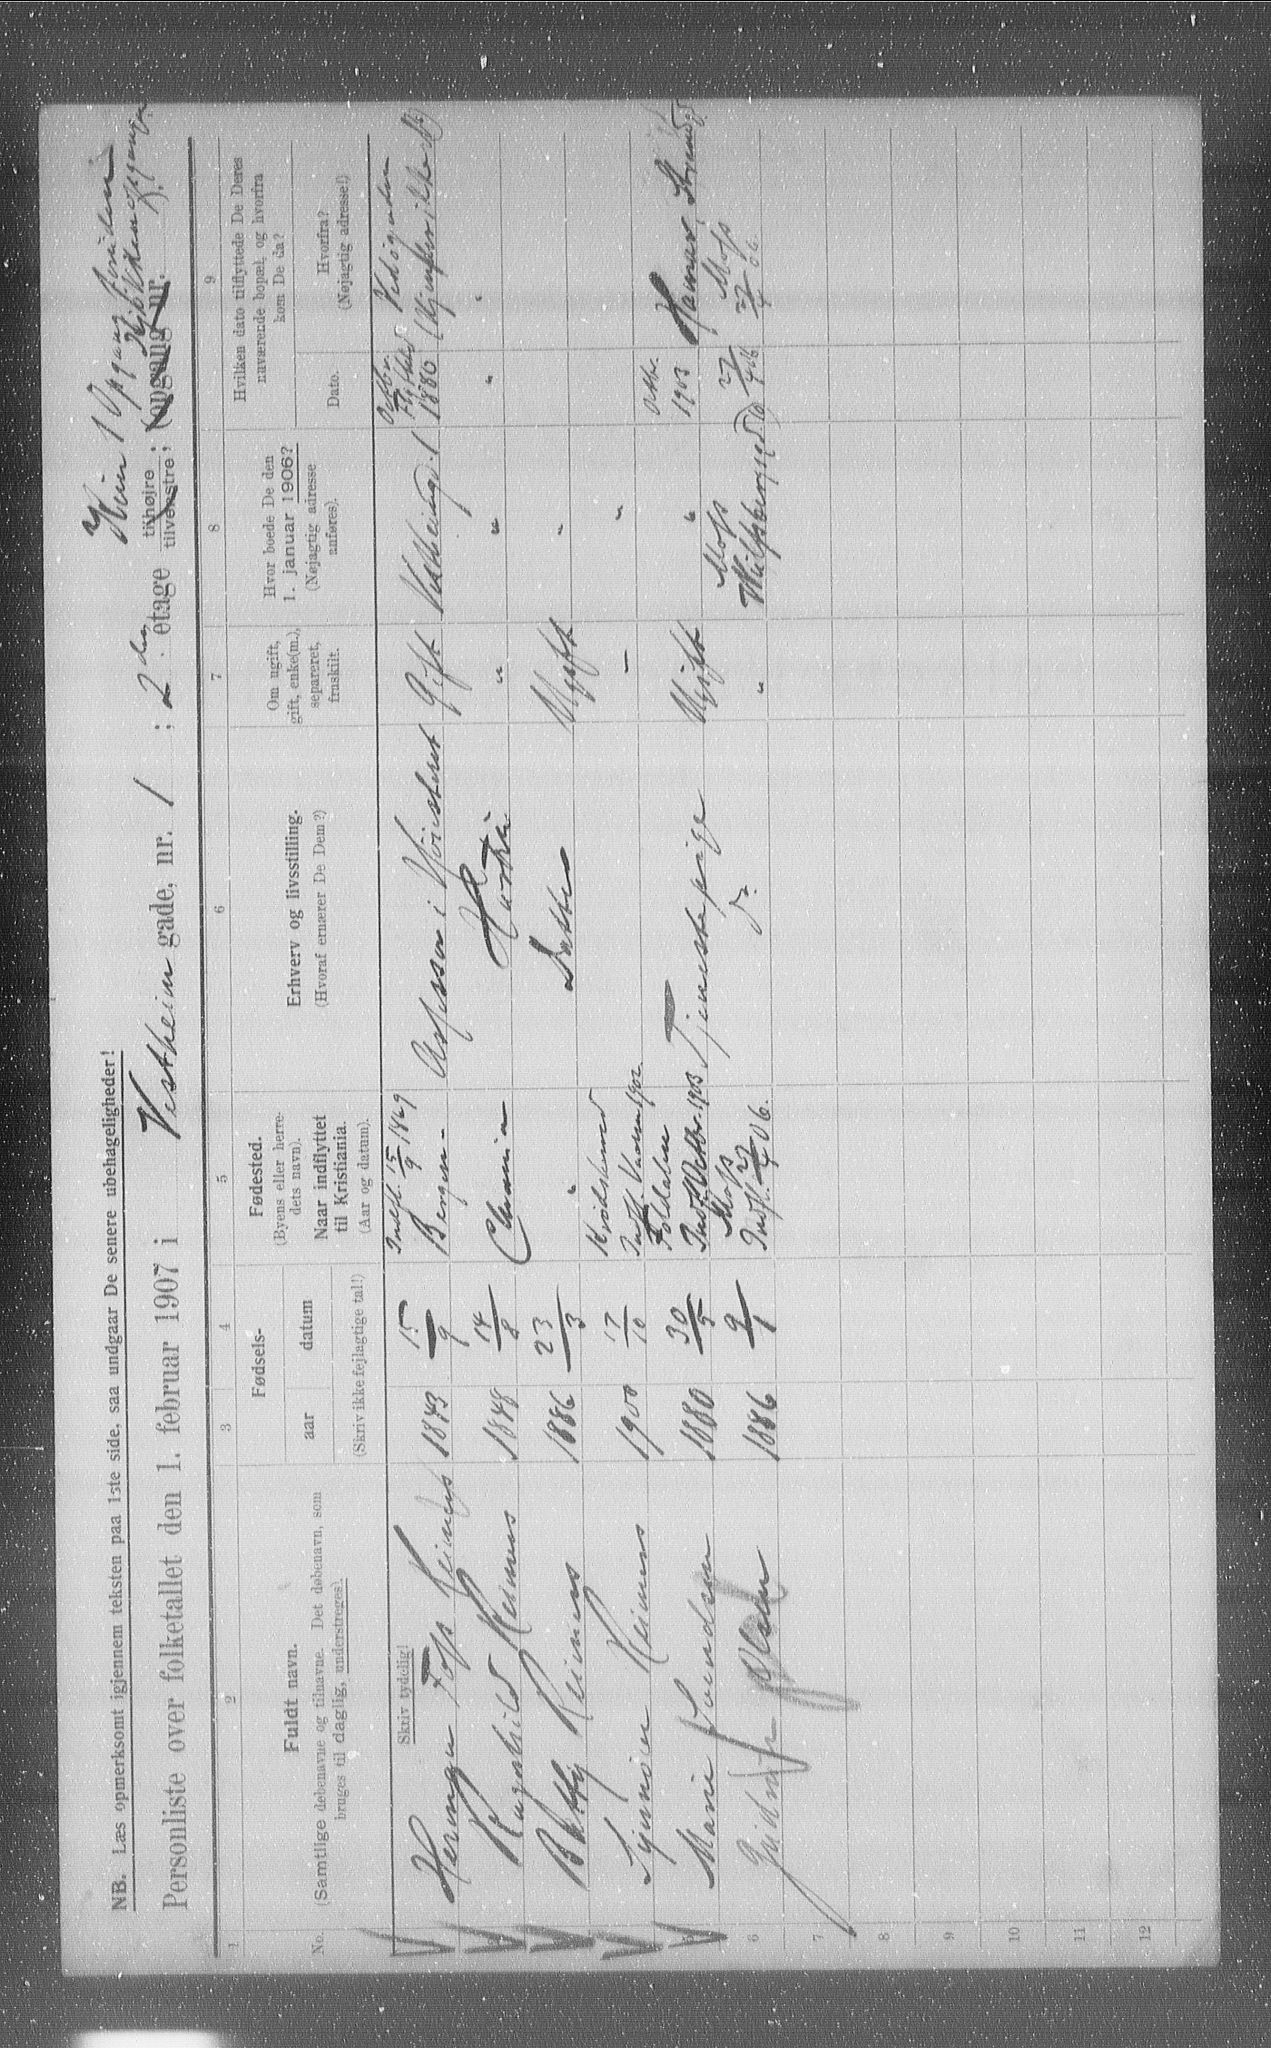 NB. Læs opmerksomt igjennem teksten paa 1ste side, saa undgaar De senere ubehageligheder!
Personliste over folketallet den 1. februar 1907 i Vestheim gade, nr. 1 ; 2den etage tilhøjre tilvenstre; (opgang nr.
Kun 1 Opgang
1 2 3 4 5 6 7 8 9
No.
Fuldt navn.
(Samtlige døbenavne og tilnavne. Det døbenavn, som
bruges til daglig, understreges).
Fødsels-
aar datum
(Skriv ikke fejlagtige tal!)
Fødested.
(Byens eller herre-
dets navn).
Naar indflyttet
til Kristiania.
(Aar og datum).
Erhverv og livsstilling.
(Hvoraf ernærer De Dem?)
Om ugift,
gift, enke(m.),
separeret,
fraskilt.
Hvor boede De den
1. januar 1906?
(Nøjagtig adresse
anføres).
Hvilken dato tilflyttede De Deres
nuværende bopæl, og hvorfra
kom De da?
Dato.
Hvorfra?
(Nøjagtig adresse!)
Skriv tydelig!
Herman Foss Reimers 1843 15/9 Indfl. 15/9 1869 Bergen Assessor i Høiesteret Gift Vestheimgd. 1 Octbr. 1880
Ragnhild Reimers 1848 14/8 Chrania Hustru " " " "
Betty Reimers 1886 23/3 " Datter Ugift "
Synnöve Reimers 1900 17/10 Indfl. 1902 — "
Marie Svendsen 1880 30/5 Foldalen Indfl. Octbr. 1903 Tjenestepige Ugift " Octbr. 1903 Hamar, Strandg.
6 Olsen 1886 9/1 Moss Indfl. 27/4 06. Do. " Moss 27/4 06 Moss 27/4 06.
7
8
9
10
11
12